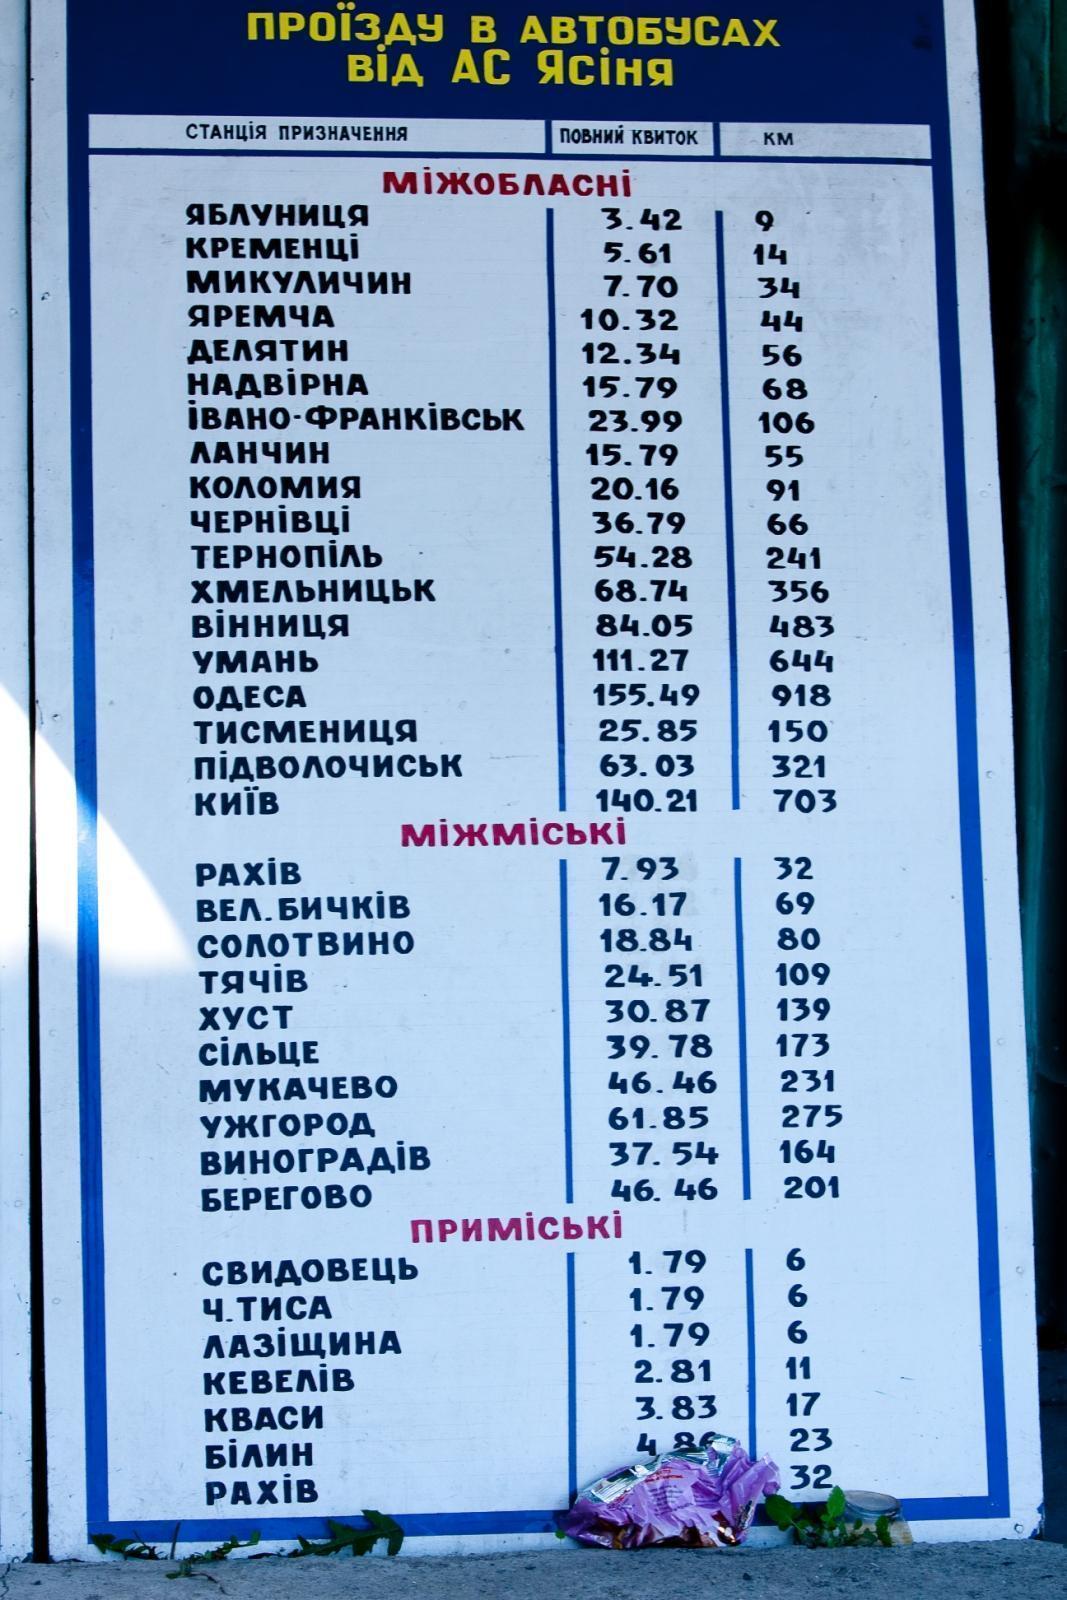 ПРОЇЗДУ В АВТОБУСАХ
ВІД АС ЯСІНЯ
СТАНЦІЯ ПРИЗНАЧЕННЯ ПОВНИЙ КВИТОК КМ
МІЖОБЛАСНІ
ЯБЛУНИЦЯ 3.42 9
КРЕМЕНЦІ 5.61 14
МИКУЛИЧИН 7.70 34
ЯРЕМЧА 10.32 44
ДЕЛЯТИН 12.34 56
НАДВІРНА 15.79 68
ІВАНО-ФРАНКІВСЬК 23.99 106
ЛАНЧИН 15.79 55
КОЛОМИЯ 20.16 91
ЧЕРНІВЦІ 36.79 66
ТЕРНОПІЛЬ 54.28 241
ХМЕЛЬНИЦЬК 68.74 356
ВІННИЦЯ 84.05 483
УМАНЬ 111.27 644
ОДЕСА 155.49 918
ТИСМЕНИЦЯ 25.85 150
ПІДВОЛОЧИСЬК 63.03 321
КИЇВ 140.21 703
МІЖМІСЬКІ
РАХІВ 7.93 32
ВЕЛ.БИЧКІВ 16.17 69
СОЛОТВИНО 18.84 80
ТЯЧІВ 24.51 109
ХУСТ 30.87 139
СІЛЬЦЕ 39.78 173
МУКАЧЕВО 46.46 231
УЖГОРОД 61.85 275
ВИНОГРАДІВ 37.54 164
БЕРЕГОВО 46.46 201
ПРИМІСЬКІ
СВИДОВЕЦЬ 1.79 6
Ч.ТИСА 1.79 6
ЛАЗІЩИНА 1.79 6
КЕВЕЛІВ 2.81 11
КВАСИ 3.83 17
БІЛИН 4.86 23
РАХІВ 32